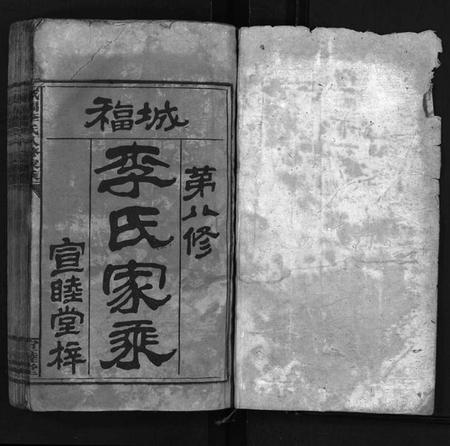 城福
第八修
李氏家乘
宣睦堂梓